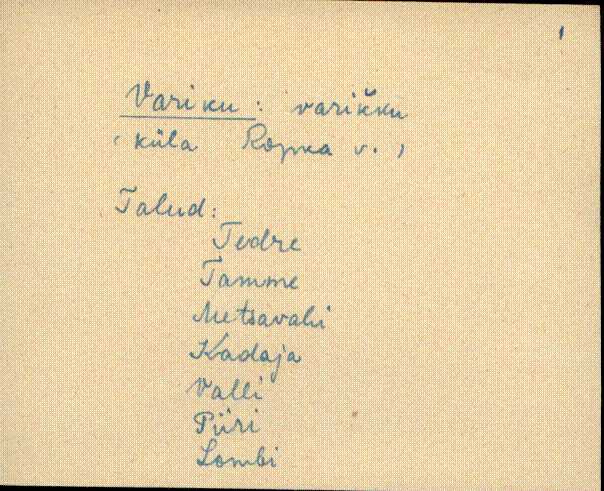 1
Variku: varikku
(küla Ropka v.)
Talud:
Tedre
Tamme
Metsavahi
Kadaja
Valli
Piiri
Lombi